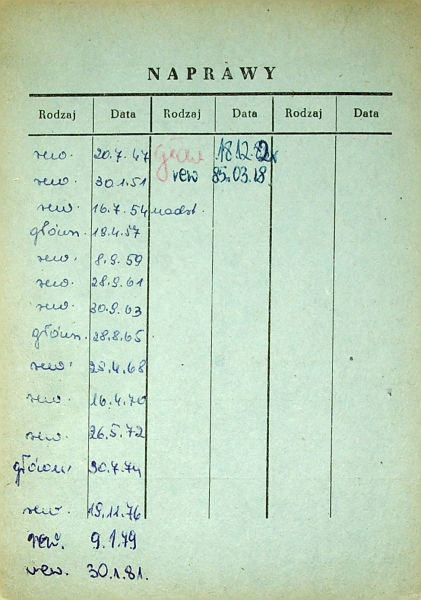 NAPRAWY
Rodzaj Data Rodzaj Data Rodzaj Data
rew. 20.7.47 głów. 18.12.82
rew. 30.1.51 rew 85.03.18.
rew. 16.7.54 nadst.
główn. 18.4.57
rew. 8.9.59
rew. 28.9.61
rew. 30.9.63
główn. 28.8.65
rew. 25.4.68
rew. 16.4.70
rew. 26.5.72
główn. 30.7.74
rew. 19.11.76
rew. 9.1.79
rew. 30.1.81.